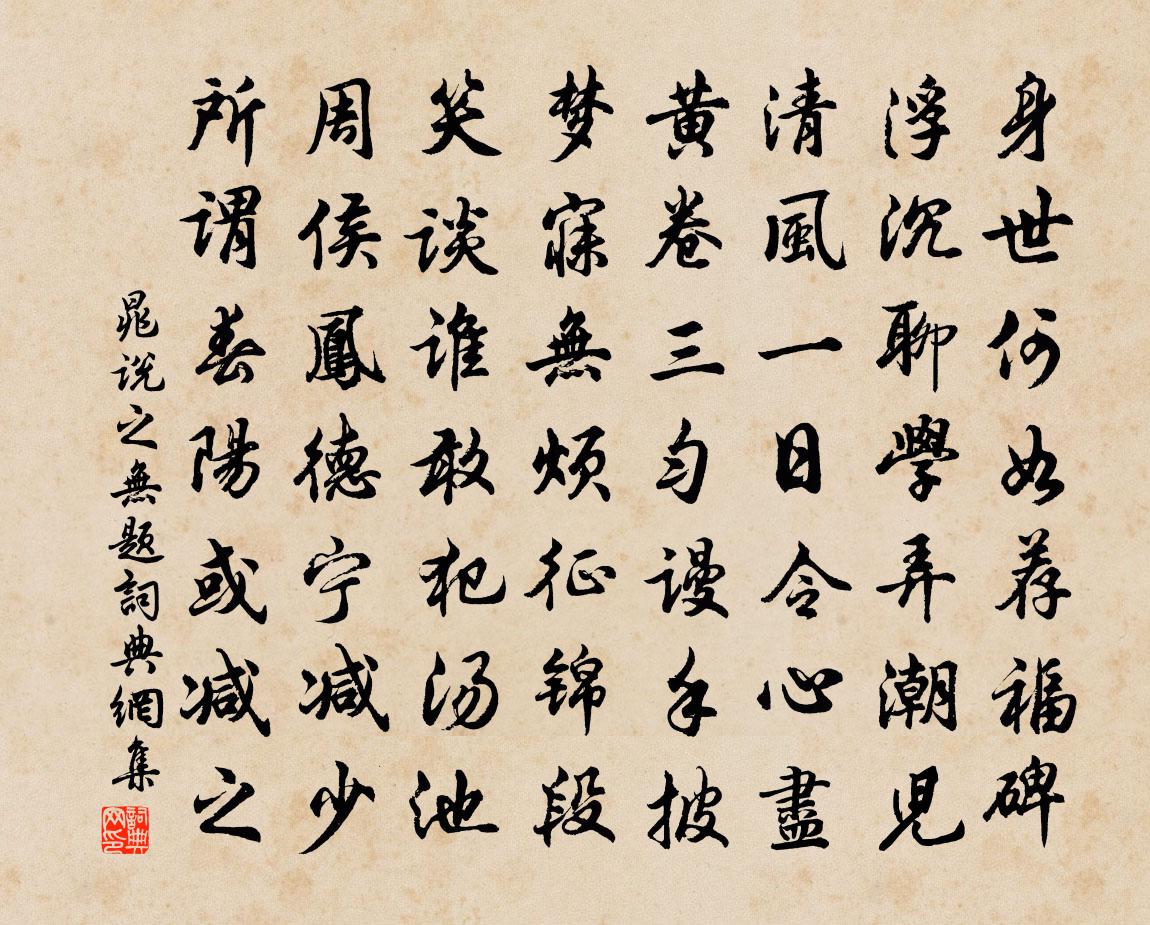 身世何如荐福碑
浮沉聊學弄潮兒
清風一日令心盡
黄卷三匀谩手披
梦寐無烦征锦段
笑谈谁敢犯汤池
周侯鳳德宁减少
所谓春陽或减之
晁说之無题詞典網集
詞典网印